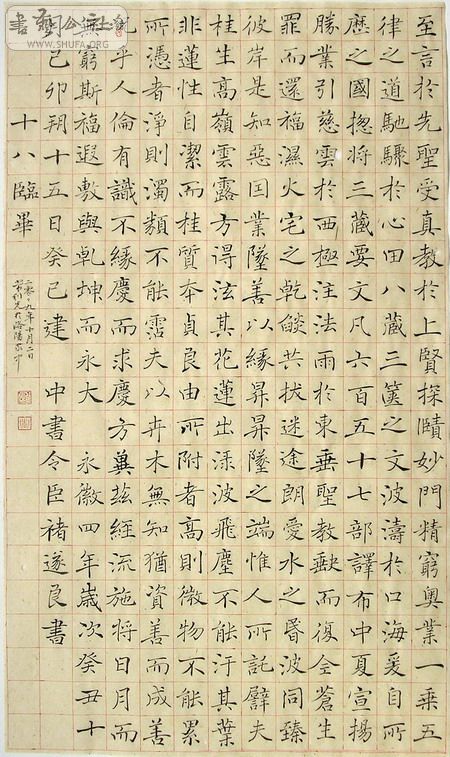 至言於先聖受真教於上賢探賾妙門精窮奥業一乗五
律之道馳驟於心田八藏三篋之文波濤於口海爰自所
歷之國揔將三藏要文凡六百五十七部譯布中夏宣揚
勝業引慈雲於西極注法雨於東垂聖教缺而復全蒼生
罪而還福濕火宅之乾燄共拔迷途朗愛水之昏波同臻
彼岸是知惡因業墜善以緣昇昇墜之端惟人所託譬夫
桂生高嶺雲露方得泫其花蓮出渌波飛塵不能汙其葉
非蓮性自潔而桂質本貞良由所附者高則微物不能累
所憑者淨則濁類不能霑夫以卉木無知猶資善而成善
況乎人倫有識不緣慶而求慶方冀茲經流施將日月而
無窮斯福遐敷與乾坤而永大 永徽四年歲次癸丑十
己卯朔十五日癸巳建 中書令臣褚遂良書
十八臨畢
九年十月二日
WWW.SHUFA.ORG